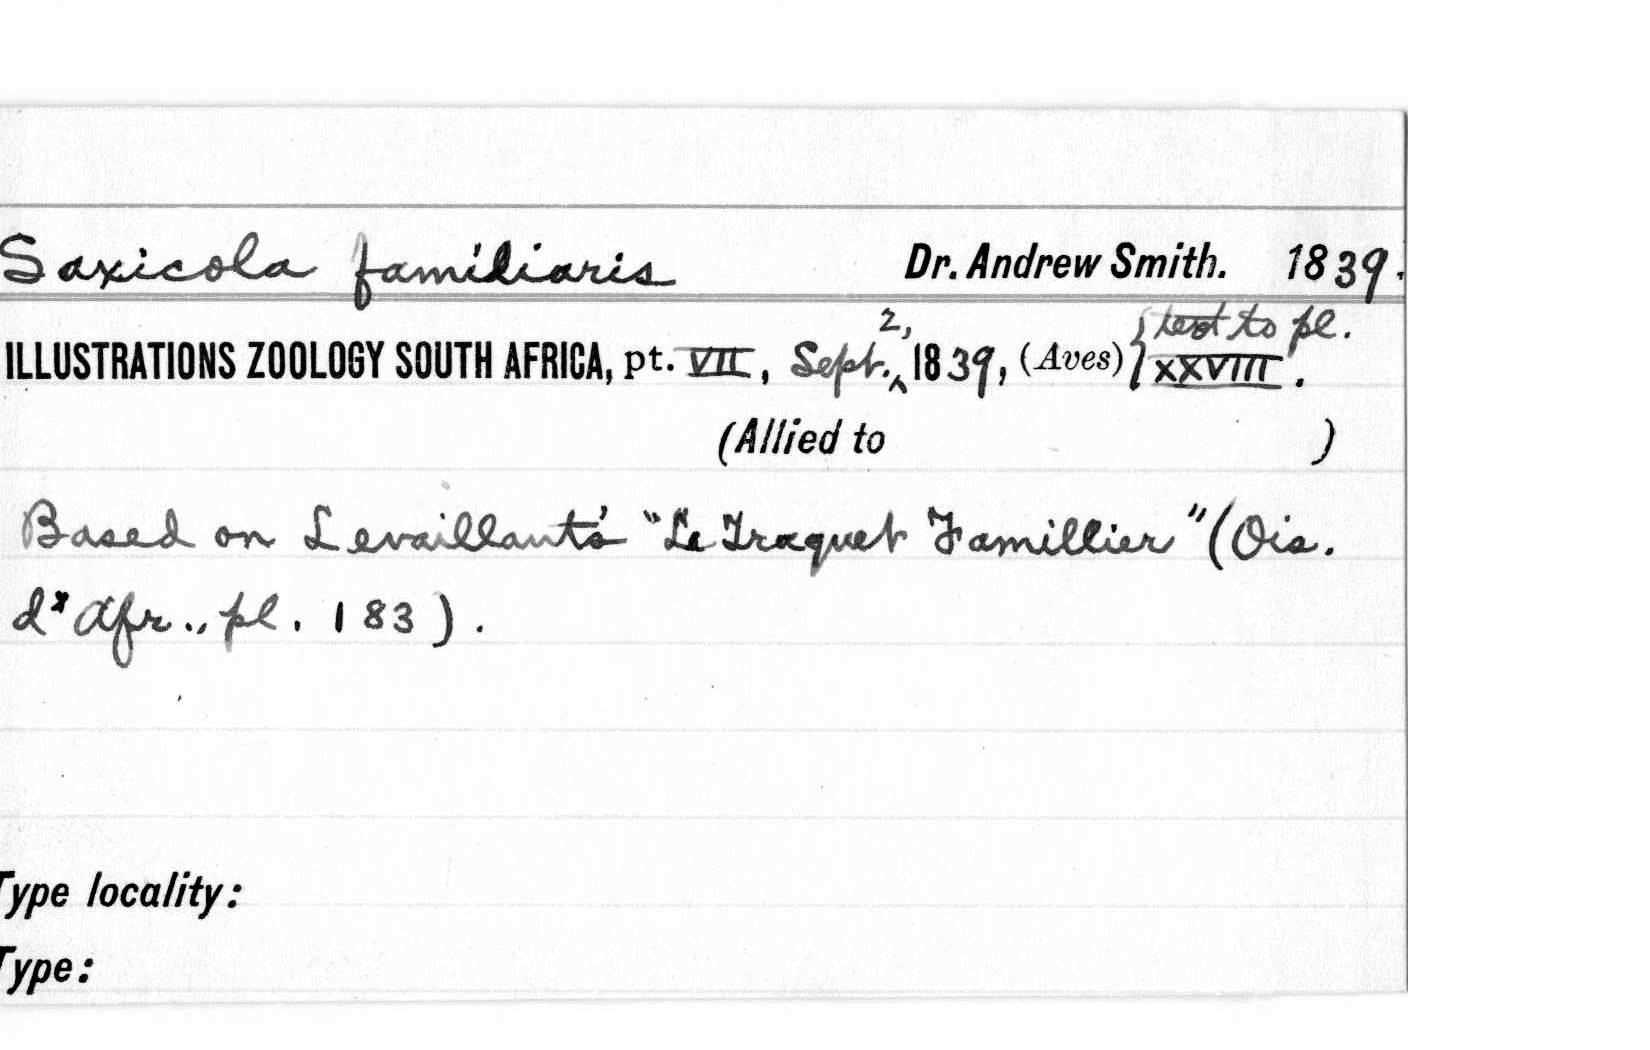 Saxicola familiaris Dr. Andrew Smith. 1839.
ILLUSTRATIONS ZOOLOGY SOUTH AFRICA, pt. VII, Sept. 2, 1839, (Aves) } text to pl. XXVIII.
(Allied to )
Based on Levaillant's "Le Traquet Famillier" (Ois.
d'Afr., pl. 183).
Type locality:
Type: